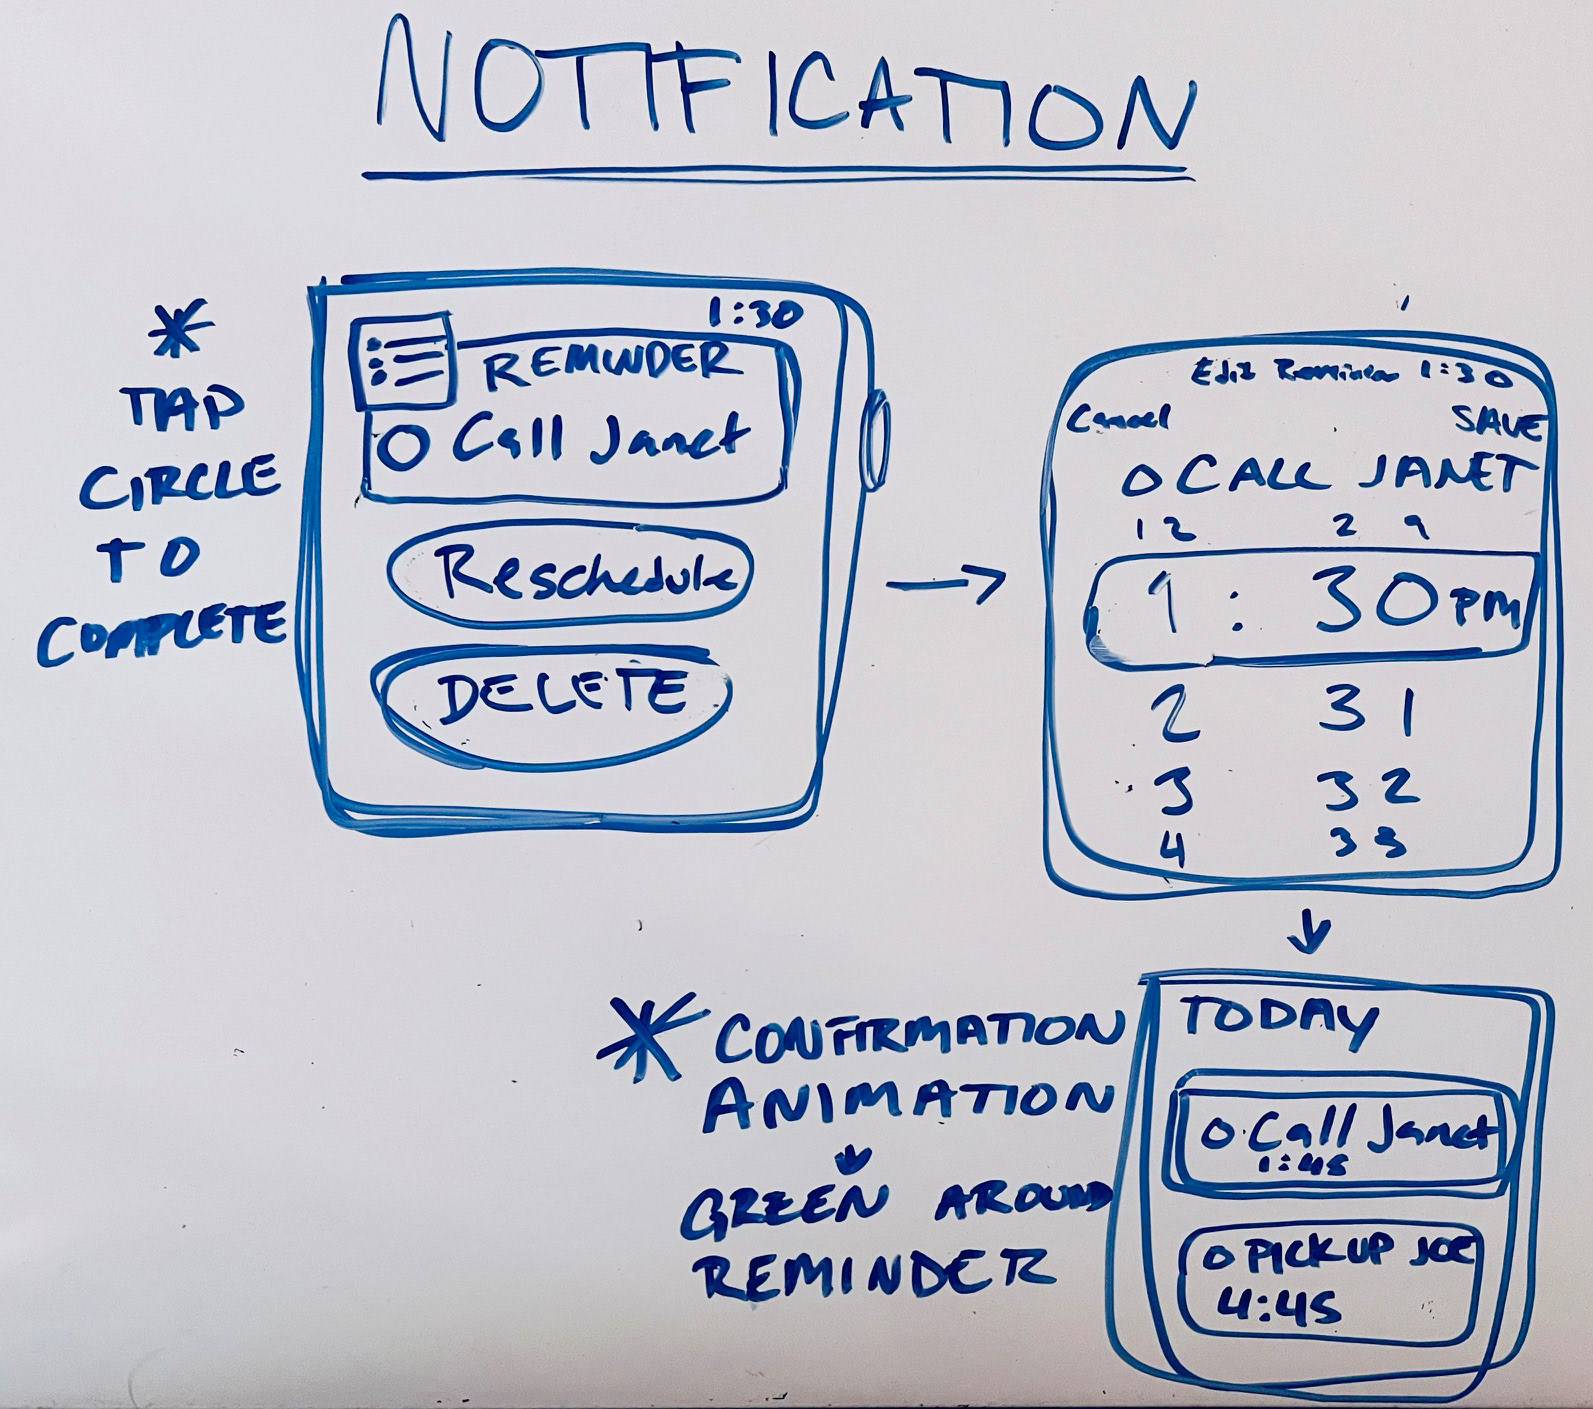 NOTIFICATION
* TAP
CIRCLE
TO
COMPLETE
1:30
REMINDER
O Call Janet
Reschedule
DELETE
→
Edit Reminder 1:30
Cancel SAVE
O CALL JANET
12 29
1 : 30 PM
2 31
3 32
4 33
↓
* CONFIRMATION
ANIMATION
↓
GREEN AROUND
REMINDER
TODAY
O Call Janet
1:45
O PICK UP JOE
4:45